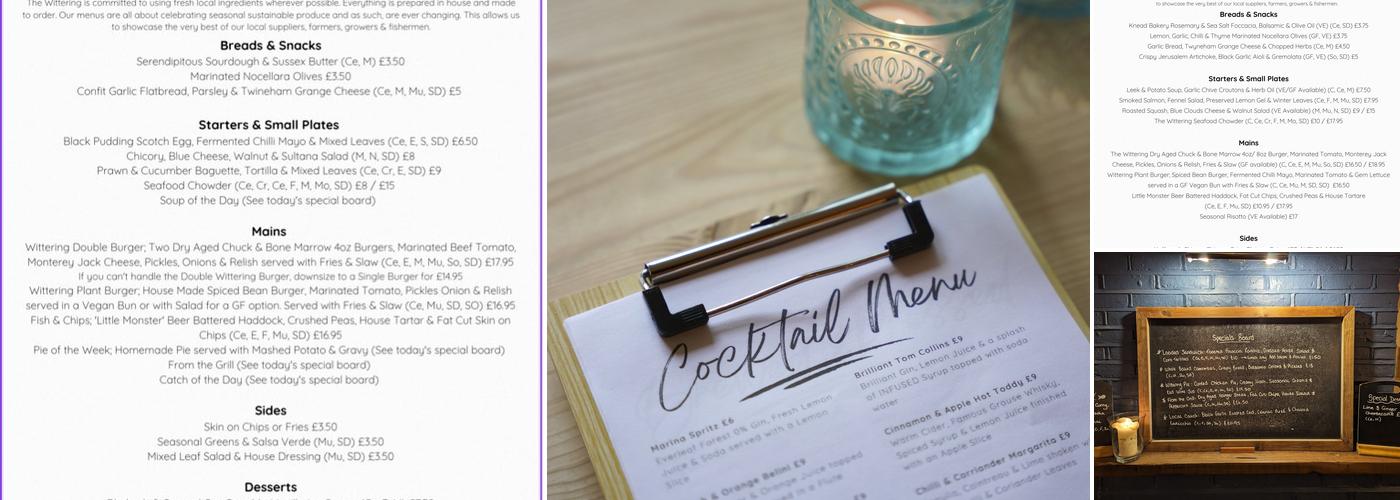 The Wittering is committed to using fresh local ingredients wherever possible. Everything is prepared in house and made
to order. Our menus are all about celebrating seasonal sustainable produce and as such, are ever changing. This allows us
to showcase the very best of our local suppliers, farmers, growers & fishermen.
Breads & Snacks
Serendipitous Sourdough & Sussex Butter (Ce, M) £3.50
Marinated Nocellara Olives £3.50
Confit Garlic Flatbread, Parsley & Twineham Grange Cheese (Ce, M, Mu, SD) £5
Starters & Small Plates
Black Pudding Scotch Egg, Fermented Chilli Mayo & Mixed Leaves (Ce, E, S, SD) £6.50
Chicory, Blue Cheese, Walnut & Sultana Salad (M, N, SD) £8
Prawn & Cucumber Baguette, Tortilla & Mixed Leaves (Ce, Cr, E, SD) £9
Seafood Chowder (Ce, Cr, Ce, F, M, Mo, SD) £8 / £15
Soup of the Day (See today's special board)
Mains
Wittering Double Burger; Two Dry Aged Chuck & Bone Marrow 4oz Burgers, Marinated Beef Tomato,
Monterey Jack Cheese, Pickles, Onions & Relish served with Fries & Slaw (Ce, E, M, Mu, So, SD) £17.95
If you can't handle the Double Wittering Burger, downsize to a Single Burger for £14.95
Wittering Plant Burger; House Made Spiced Bean Burger, Marinated Tomato, Pickles Onion & Relish
served in a Vegan Bun or with Salad for a GF option. Served with Fries & Slaw (Ce, Mu, SD, SO) £16.95
Fish & Chips; 'Little Monster' Beer Battered Haddock, Crushed Peas, House Tartar & Fat Cut Skin on
Chips (Ce, E, F, Mu, SD) £16.95
Pie of the Week; Homemade Pie served with Mashed Potato & Gravy (See today's special board)
From the Grill (See today's special board)
Catch of the Day (See today's special board)
Sides
Skin on Chips or Fries £3.50
Seasonal Greens & Salsa Verde (Mu, SD) £3.50
Mixed Leaf Salad & House Dressing (Mu, SD) £3.50
Desserts
Cocktail Menu
Marina Spritz £6
Everleaf Forest 0% Gin, Fresh Lemon
Juice & Soda served with a Lemon
Slice
& Orange Belini £9
& Orange Juice topped
Brilliant Tom Collins £9
Brilliant Gin, Lemon Juice & a splash
of INFUSED Syrup topped with soda
water
Cinnamon & Apple Hot Toddy £9
Warm Cider, Famous Grouse Whisky,
Spiced Syrup & Lemon Juice finished
with an Apple Slice
Chilli & Corriander Margarita £9
Cointreau & Lime shaken
to showcase the very best of our local suppliers, farmers, growers & fishermen.
Breads & Snacks
Knead Bakery Rosemary & Sea Salt Foccacia, Balsamic & Olive Oil (VE) (Ce, SD) £3.75
Lemon, Garlic, Chilli & Thyme Marinated Nocellara Olives (GF, VE) £3.75
Garlic Bread, Twyneham Grange Cheese & Chopped Herbs (Ce, M) £4.50
Crispy Jerusalem Artichoke, Black Garlic Aioli & Gremolata (GF, VE) (So, SD) £5
Starters & Small Plates
Leek & Potato Soup, Garlic Chive Croutons & Herb Oil (VE/GF Available) (C, Ce, M) £7.50
Smoked Salmon, Fennel Salad, Preserved Lemon Gel & Winter Leaves (Ce, F, M, Mu, SD) £7.95
Roasted Squash, Blue Clouds Cheese & Walnut Salad (VE Available) (M, N, Mu, SD) £9 / £15
The Wittering Seafood Chowder (C, Ce, Cr, F, M, Mo, SD) £10 / £17.95
Mains
The Wittering Dry Aged Chuck & Bone Marrow 4oz/ 8oz Burger, Marinated Tomato, Monterey Jack
Cheese, Pickles, Onions & Relish, Fries & Slaw (GF available) (C, Ce, E, M, Mu, SO, SD) £16.50 / £18.95
Wittering Plant Burger; Spiced Bean Burger, Fermented Chilli Mayo, Marinated Tomato & Gem Lettuce
served in a GF Vegan Bun with Fries & Slaw (C, Ce, Mu, M, SD, SO) £16.50
Little Monster Beer Battered Haddock, Fat Cut Chips, Crushed Peas & House Tartare
(Ce, E, F, Mu, SD) £10.95 / £17.95
Seasonal Risotto (VE Available) £17
Sides
Specials Board
Special